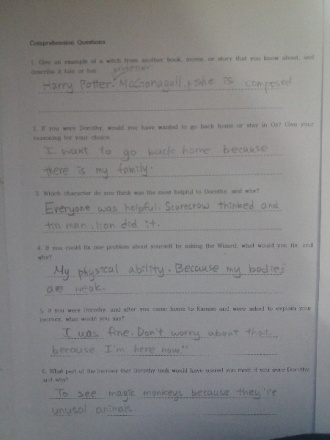 Comprehension Questions
1. Give an example of a witch from another book, movie, or story that you know about, and
describe it like or not
professor
Harry Potter. McGonagall, she is composed
2. If you were Dorothy, would you have wanted to go back home or stay in Oz? Give your
reasoning for your choice.
I want to go back home because
there is my family.
3. Which character do you think was the most helpful to Dorothy, and why?
Everyone was helpful. Scarecrow thinked and
tin man, lion did it.
4. If you could fix one problem about yourself by asking the Wizard, what would you fix, and
why?
My physical ability. Because my bodies
are weak.
5. If you were Dorothy and after you came home to Kansas and were asked to explain your
what would you say?
I was fine. Don't worry about that.
because I'm here now."
6. What part of the journey that Dorothy took would have scared you most if you were Dorothy,
and why?
To see magic monkeys because they're
unusal animas.